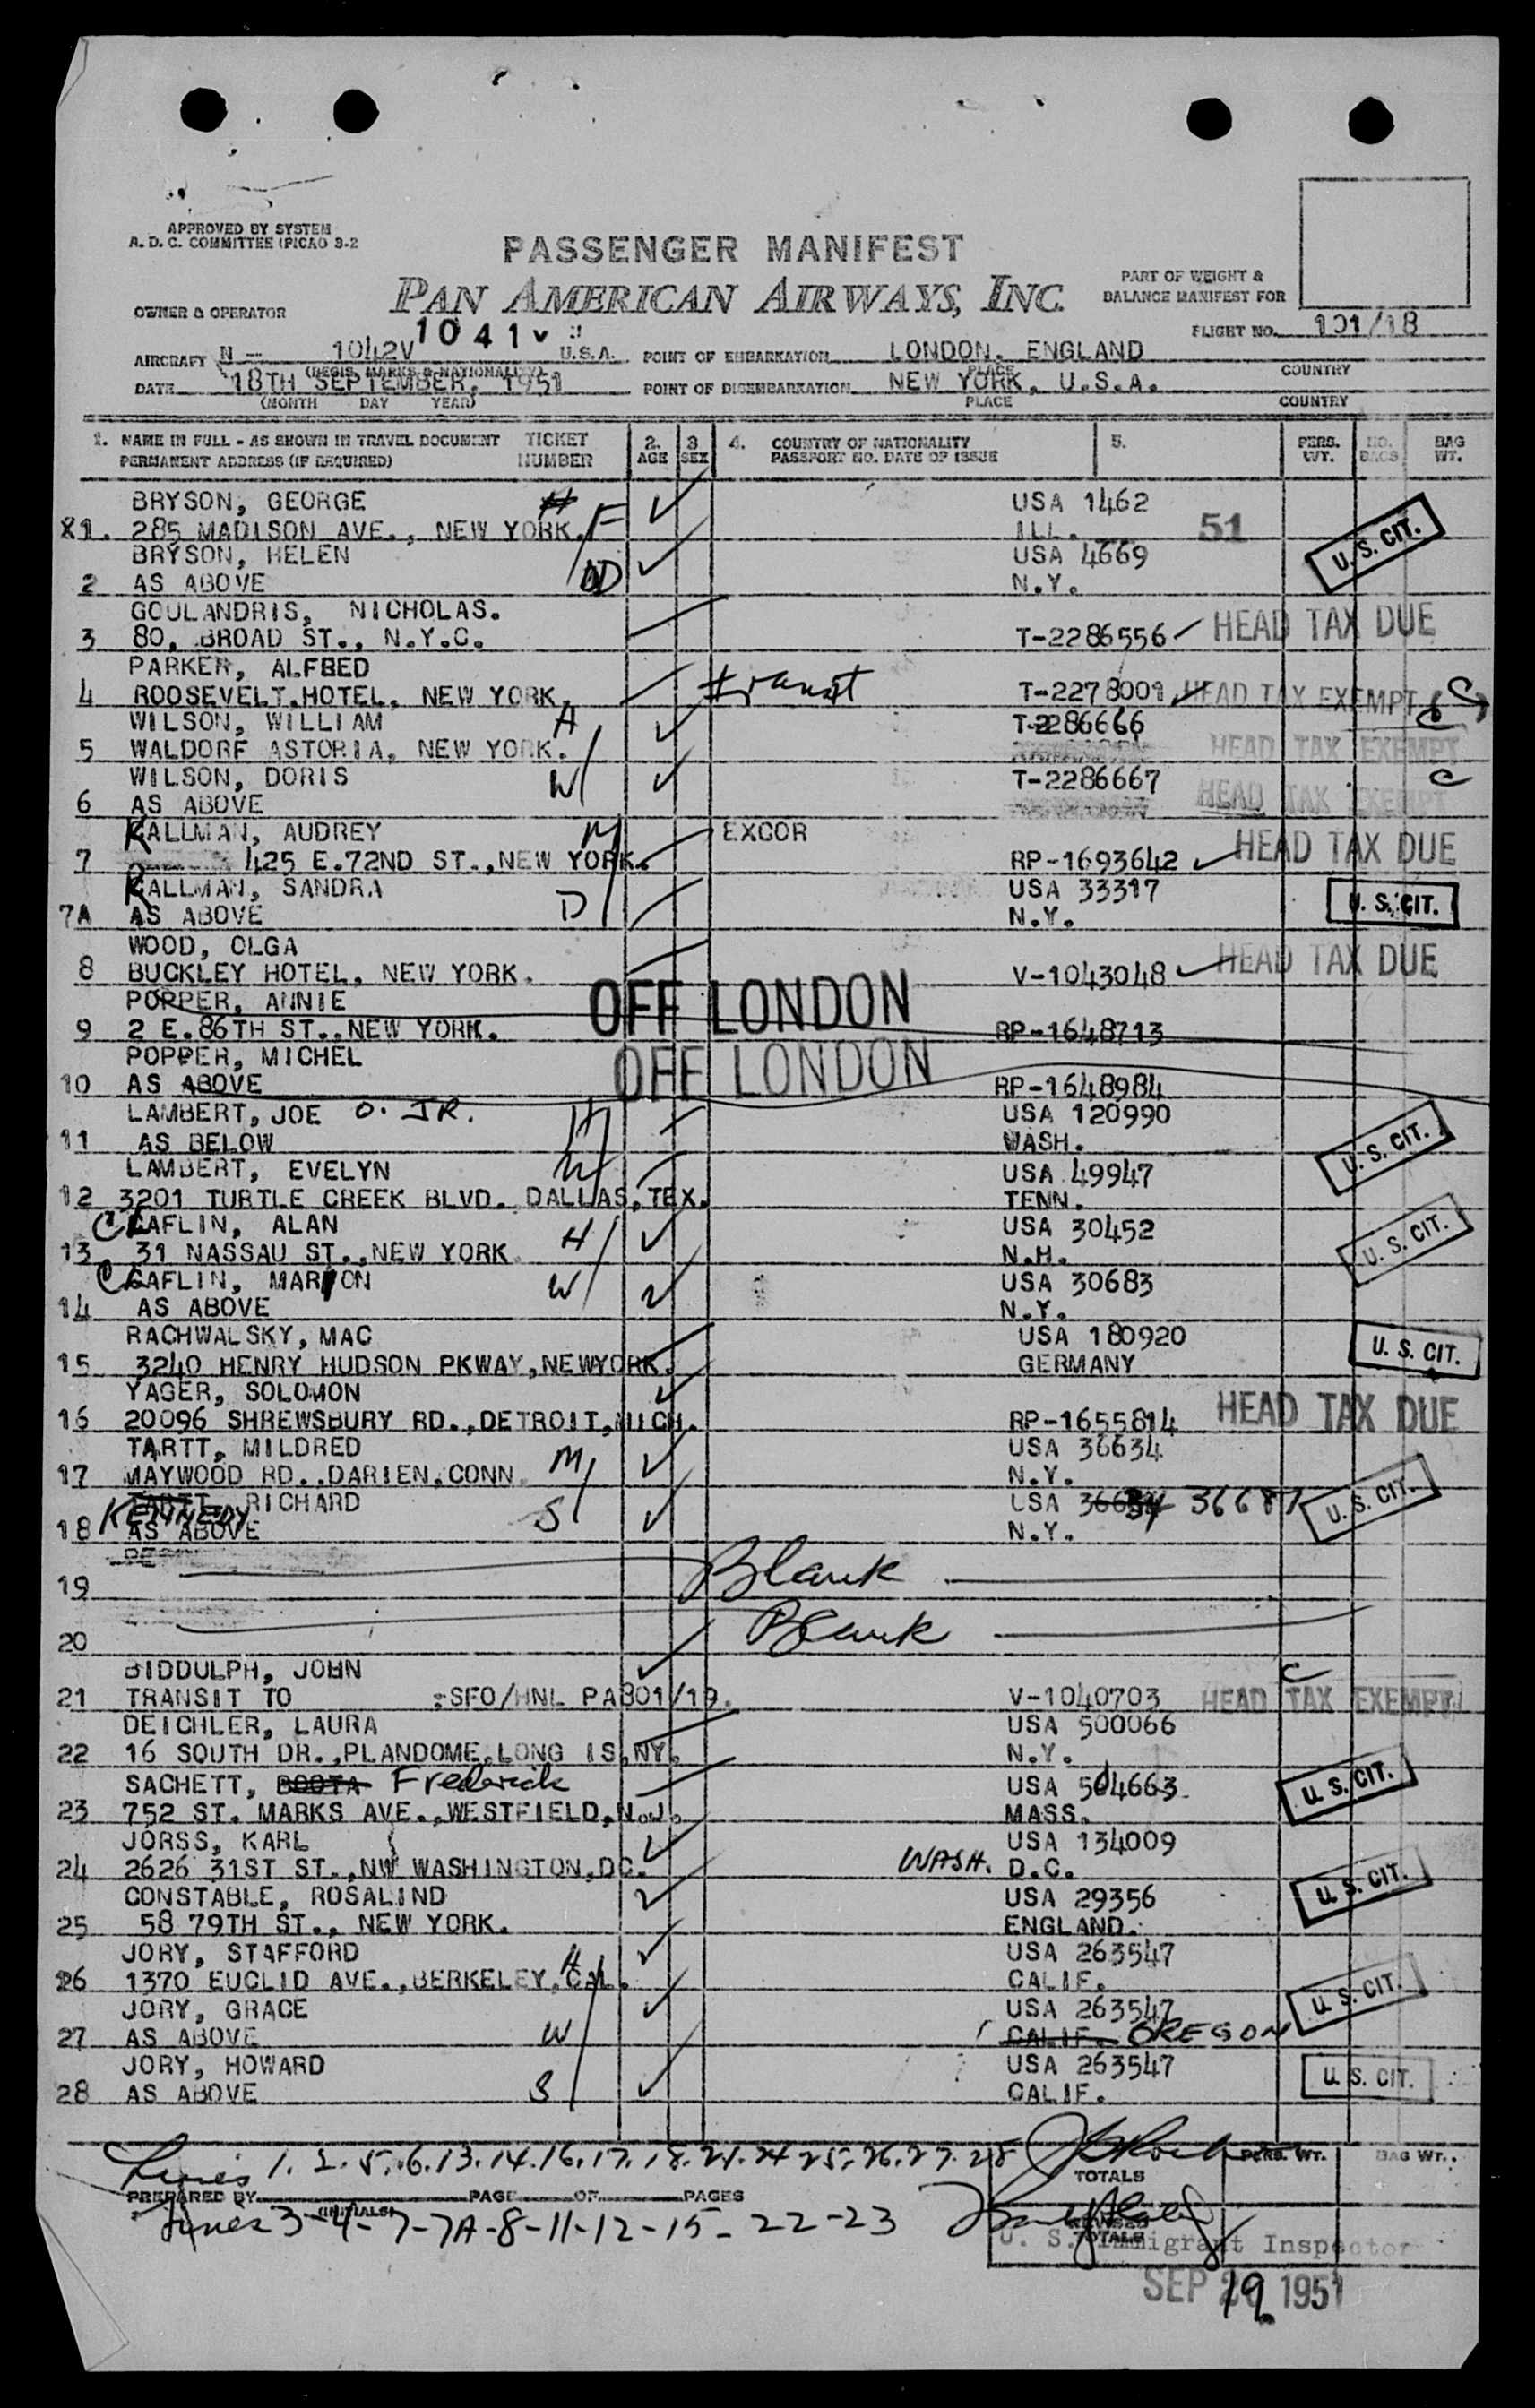 APPROVED BY SYSTEM
A. D. C. COMMITTEE (PICAO 3-2
PASSENGER MANIFEST
PAN AMERICAN AIRWAYS, INC.
PART OF WEIGHT &
BALANCE MANIFEST FOR
OWNER & OPERATOR
FLIGHT NO. 101/18
1041V
AIRCRAFT N - 1042V U.S.A. POINT OF EMBARKATION LONDON, ENGLAND
(REGIS. MARKS & NATIONALITY) PLACE COUNTRY
DATE 18TH SEPTEMBER, 1951 POINT OF DISEMBARKATION NEW YORK, U.S.A.
(MONTH DAY YEAR) PLACE COUNTRY
1. NAME IN FULL - AS SHOWN IN TRAVEL DOCUMENT TICKET 2. 3. 4. COUNTRY OF NATIONALITY 5. PERS. NO. BAG
PERMANENT ADDRESS (IF REQUIRED) NUMBER AGE SEX PASSPORT NO. DATE OF ISSUE WT. BAGS WT.
BRYSON, GEORGE H USA 1462
X1. 285 MADISON AVE., NEW YORK. F ILL. 51 U. S. CIT.
BRYSON, HELEN USA 4669
2 AS ABOVE D N.Y.
GOULANDRIS, NICHOLAS.
3 80, BROAD ST., N.Y.C. T-2286556 HEAD TAX DUE
PARKER, ALFRED
4 ROOSEVELT.HOTEL, NEW YORK. transit T-2278001 HEAD TAX EXEMPT C
WILSON, WILLIAM H T-2286666
5 WALDORF ASTORIA, NEW YORK. HEAD TAX EXEMPT
WILSON, DORIS W T-2286667 C
6 AS ABOVE HEAD TAX EXEMPT
KALLMAN, AUDREY M EXCOR
7 425 E.72ND ST.,NEW YORK. RP-1693642 HEAD TAX DUE
KALLMAN, SANDRA D USA 33317
7A AS ABOVE N.Y. U. S. CIT.
WOOD, OLGA
8 BUCKLEY HOTEL, NEW YORK. V-1043048 HEAD TAX DUE
POPPER, ANNIE OFF LONDON
9 2 E.86TH ST.,NEW YORK. RP-1648713
POPPER, MICHEL OFF LONDON
10 AS ABOVE RP-1648984
LAMBERT, JOE O. JR. H USA 120990
11 AS BELOW WASH. U. S. CIT.
LAMBERT, EVELYN W USA 49947
12 3201 TURTLE CREEK BLVD. DALLAS, TEX. TENN.
CLAFLIN, ALAN H USA 30452
13 31 NASSAU ST.,NEW YORK. N.H. U. S. CIT.
CLAFLIN, MARION W USA 30683
14 AS ABOVE N.Y.
RACHWALSKY, MAC USA 180920
15 3240 HENRY HUDSON PKWAY,NEWYORK. GERMANY U. S. CIT.
YAGER, SOLOMON
16 20096 SHREWSBURY RD.,DETROIT,MICH. RP-1655814 HEAD TAX DUE
TARTT, MILDRED M USA 36634
17 MAYWOOD RD.,DARIEN,CONN. N.Y.
KENNEDY TARTT, RICHARD S USA 36687 U. S. CIT.
18 AS ABOVE N.Y.
19 Blank
20 Blank
BIDDULPH, JOHN C
21 TRANSIT TO :SFO/HNL PA801/19. V-1040703 HEAD TAX EXEMPT
DEICHLER, LAURA USA 500066
22 16 SOUTH DR.,PLANDOME,LONG IS,NY. N.Y.
SACHETT, BOOTA Frederick USA 504663 U. S. CIT.
23 752 ST. MARKS AVE.,WESTFIELD,N.J. MASS.
JORSS, KARL USA 134009
24 2626 31ST ST.,NW WASHINGTON,DC. WASH. D.C.
CONSTABLE, ROSALIND USA 29356 U. S. CIT.
25 58 79TH ST., NEW YORK. ENGLAND.
JORY, STAFFORD H USA 263547
26 1370 EUCLID AVE.,BERKELEY,CAL. CALIF. U. S. CIT.
JORY, GRACE USA 263547
27 AS ABOVE W CALIF. OREGON
JORY, HOWARD USA 263547
28 AS ABOVE S CALIF. U. S. CIT.
Lines 1. 2. 5. 6. 13. 14. 16. 17. 18. 21. 24 25. 26. 27. 28
TOTALS PERS. WT. BAG WT.
PREPARED BY PAGE OF PAGES
(INITIALS)
Lines 3-4-7-7A-8-11-12-15-22-23
REVISED
TOTALS
U. S. Immigrant Inspector
SEP 19 1951